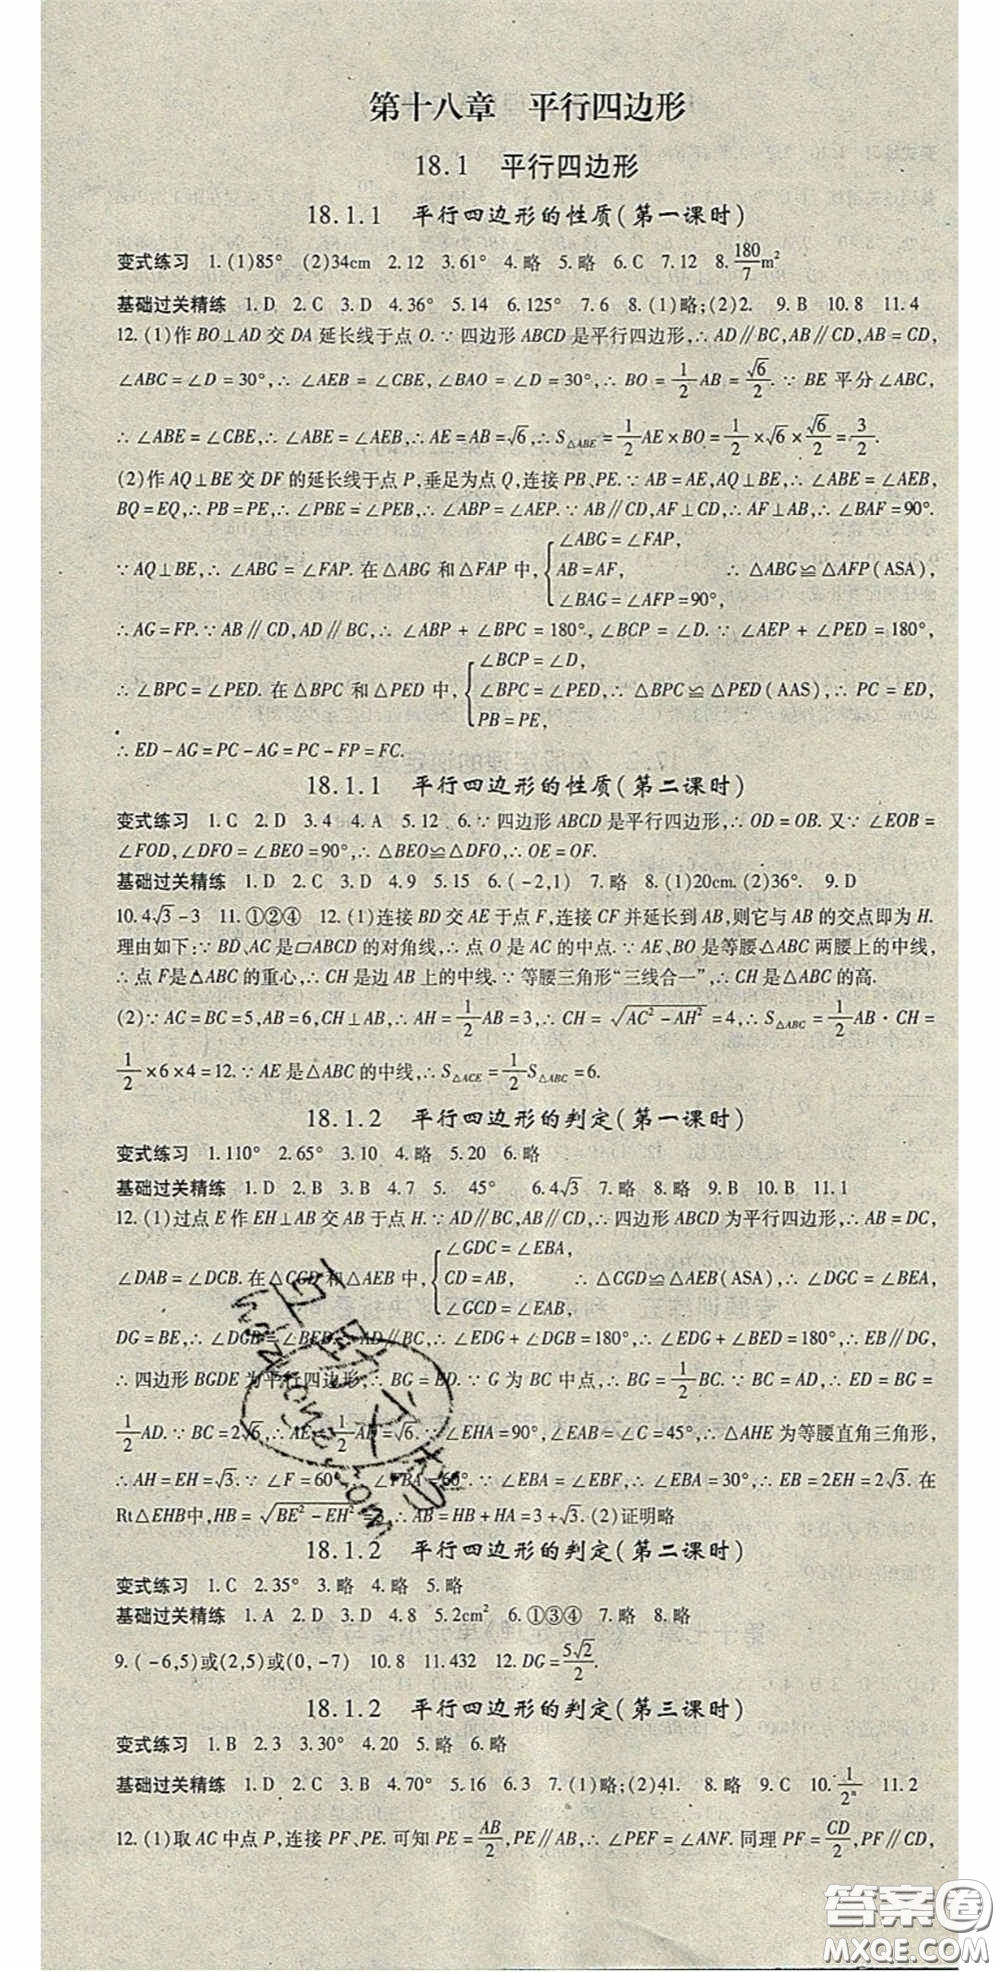 第十八章　平行四边形
18.1　平行四边形
18.1.1　平行四边形的性质(第一课时)
变式练习　1.(1)85°　(2)34cm　2.12　3.61°　4.略　5.略　6.C　7.12　8.180/7 m²
基础过关精练　1.D　2.C　3.D　4.36°　5.14　6.125°　7.6　8.(1)略;(2)2.　9.B　10.8　11.4
12.(1)作BO⊥AD交DA延长线于点O.∵四边形ABCD是平行四边形,∴AD∥BC,AB∥CD,AB=CD,
∠ABC=∠D=30°,∴∠AEB=∠CBE,∠BAO=∠D=30°,∴BO=1/2AB=√6/2.∵BE平分∠ABC,
∴∠ABE=∠CBE,∴∠ABE=∠AEB,∴AE=AB=√6,∴S△ABE=1/2AE×BO=1/2×√6×√6/2=3/2.
(2)作AQ⊥BE交DF的延长线于点P,垂足为点Q,连接PB、PE.∵AB=AE,AQ⊥BE,∴∠ABE=∠AEB,
BQ=EQ,∴PB=PE,∴∠PBE=∠PEB,∴∠ABP=∠AEP.∵AB∥CD,AF⊥CD,∴AF⊥AB,∴∠BAF=90°.
∵AQ⊥BE,∴∠ABG=∠FAP.在△ABG和△FAP中,{∠ABG=∠FAP, AB=AF, ∠BAG=∠AFP=90°,　∴△ABG≌△AFP(ASA),
∴AG=FP.∵AB∥CD,AD∥BC,∴∠ABP+∠BPC=180°,∠BCP=∠D.∵∠AEP+∠PED=180°,
∴∠BPC=∠PED.在△BPC和△PED中,{∠BCP=∠D, ∠BPC=∠PED, PB=PE,　∴△BPC≌△PED(AAS),∴PC=ED,
∴ED-AG=PC-AG=PC-FP=FC.
18.1.1　平行四边形的性质(第二课时)
变式练习　1.C　2.D　3.4　4.A　5.12　6.∵四边形ABCD是平行四边形,∴OD=OB.又∵∠EOB=
∠FOD,∠DFO=∠BEO=90°,∴△BEO≌△DFO,∴OE=OF.
基础过关精练　1.D　2.C　3.D　4.9　5.15　6.(-2,1)　7.略　8.(1)20cm.(2)36°.　9.D
10.4√3-3　11.①②④　12.(1)连接BD交AE于点F,连接CF并延长到AB,则它与AB的交点即为H.
理由如下:∵BD、AC是▱ABCD的对角线,∴点O是AC的中点.∵AE、BO是等腰△ABC两腰上的中线,
∴点F是△ABC的重心,∴CH是边AB上的中线.∵等腰三角形“三线合一”,∴CH是△ABC的高.
(2)∵AC=BC=5,AB=6,CH⊥AB,∴AH=1/2AB=3,∴CH=√(AC²-AH²)=4,∴S△ABC=1/2AB·CH=
1/2×6×4=12.∵AE是△ABC的中线,∴S△ACE=1/2S△ABC=6.
18.1.2　平行四边形的判定(第一课时)
变式练习　1.110°　2.65°　3.10　4.略　5.20　6.略
基础过关精练　1.D　2.B　3.B　4.7　5.　45°　6.4√3　7.略　8.略　9.B　10.B　11.1
12.(1)过点E作EH⊥AB交AB于点H.∵AD∥BC,AB∥CD,∴四边形ABCD为平行四边形,∴AB=DC,
∠DAB=∠DCB.在△CGD和△AEB中,{∠GDC=∠EBA, CD=AB, ∠GCD=∠EAB,　∴△CGD≌△AEB(ASA),∴∠DGC=∠BEA,
DG=BE,∴∠DGB=∠BED.∵AD∥BC,∴∠EDG+∠DGB=180°,∴∠EDG+∠BED=180°,∴EB∥DG,
∴四边形BGDE为平行四边形,∴BG=ED.∵G为BC中点,∴BG=1/2BC.∵BC=AD,∴ED=BG=
1/2AD.∵BC=2√6,∴AE=1/2AD=√6.∵∠EHA=90°,∠EAB=∠C=45°,∴△AHE为等腰直角三角形,
∴AH=EH=√3.∵∠F=60°,∴∠FBA=60°.∵∠EBA=∠EBF,∴∠EBA=30°,∴EB=2EH=2√3.在
Rt△EHB中,HB=√(BE²-EH²)=3,∴AB=HB+HA=3+√3.(2)证明略
18.1.2　平行四边形的判定(第二课时)
变式练习　1.C　2.35°　3.略　4.略　5.略
基础过关精练　1.A　2.D　3.D　4.8　5.2cm²　6.①③④　7.略　8.略
9.(-6,5)或(2,5)或(0,-7)　10.8　11.432　12.DG=5√2/2.
18.1.2　平行四边形的判定(第三课时)
变式练习　1.B　2.3　3.30°　4.20　5.略　6.略
基础过关精练　1.D　2.C　3.B　4.70°　5.16　6.3　7.(1)略;(2)41.　8.略　9.C　10.1/2ⁿ　11.2
12.(1)取AC中点P,连接PF、PE.可知PE=AB/2,PE∥AB,∴∠PEF=∠ANF.同理PF=CD/2,PF∥CD,
答案卷
MXQE.COM